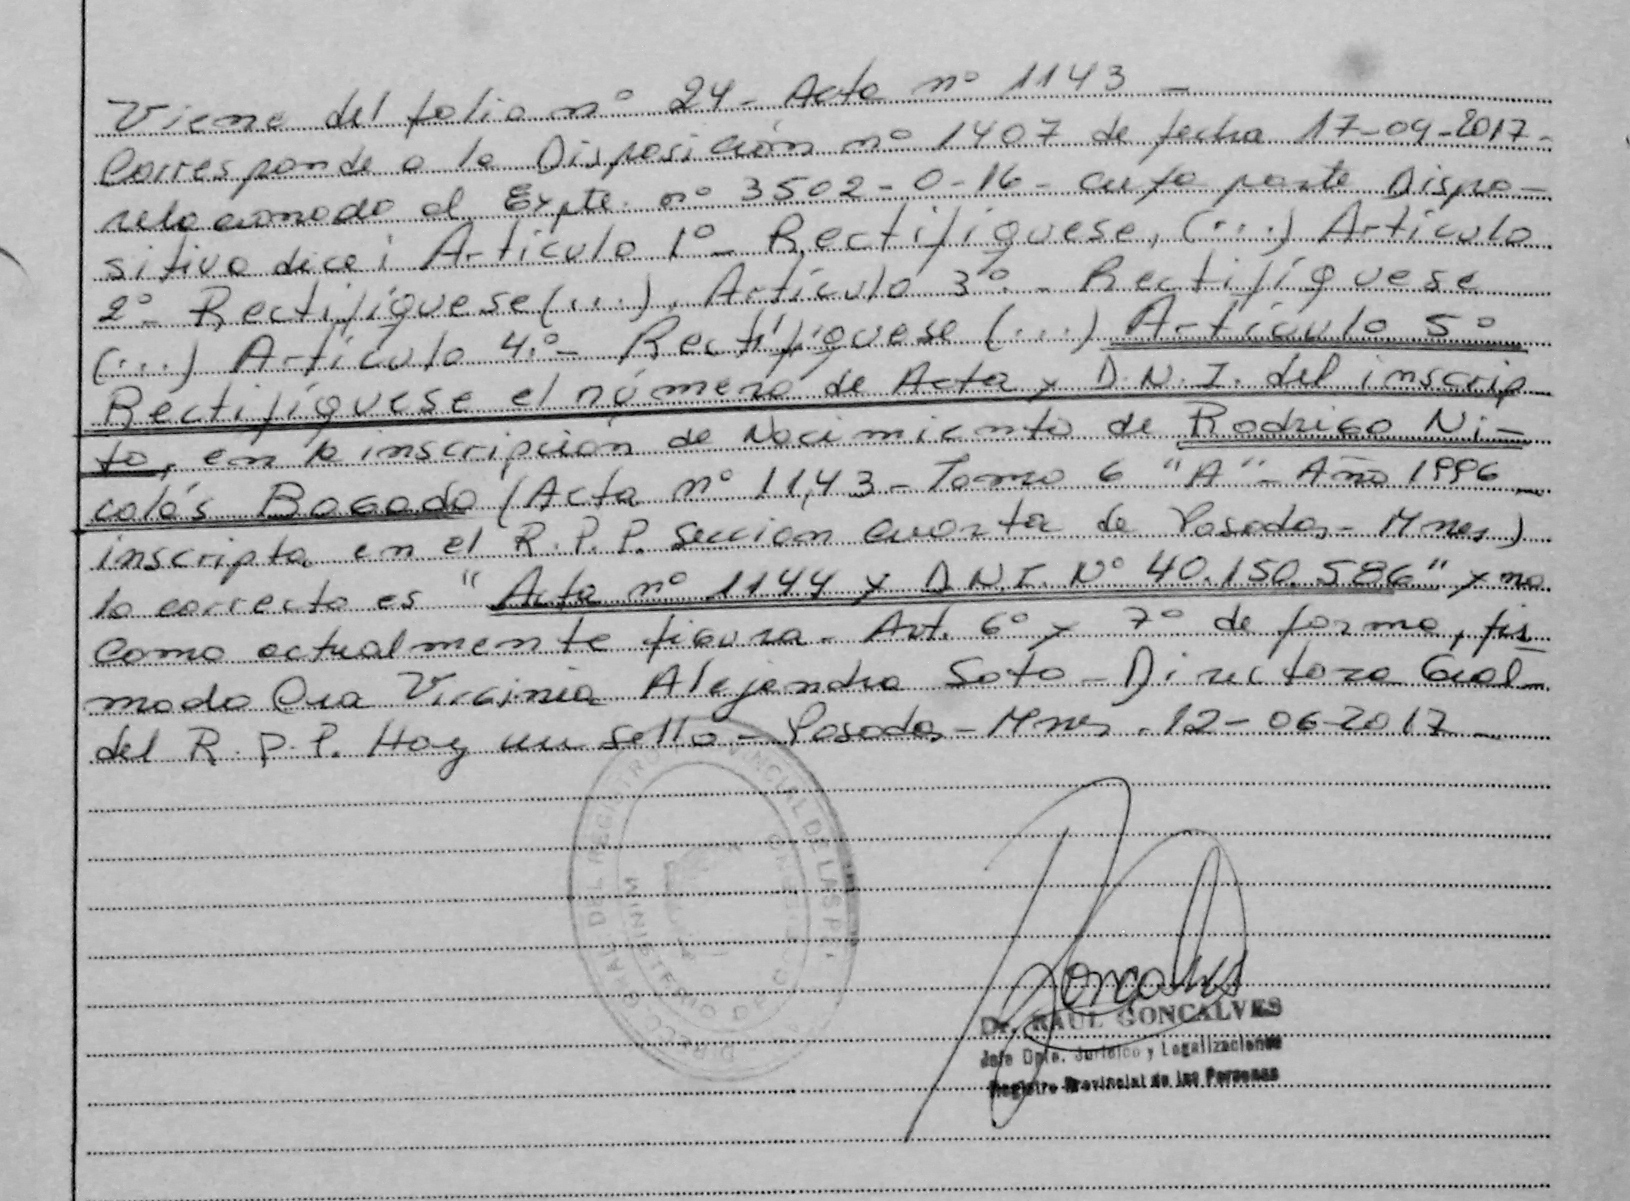 Viene del folio nº 24 - Acta nº 1143 -
Corresponde a la Disposición nº 1407 de fecha 17-09-2017-
relacionado al Expte. nº 3502-0-16- cuya parte Dispo-
sitiva dice: Artículo 1º- Rectifíquese, (...) Artículo
2º- Rectifíquese (...). Artículo 3º- Rectifíquese
(...) Artículo 4º- Rectifíquese (...) Artículo 5º
Rectifíquese el número de Acta y D.N.I. del inscrip
to, en la inscripción de Nacimiento de Rodrigo Ni-
colás Bogado (Acta nº 1143 - Tomo 6 "A" - Año 1996
inscripta en el R.P.P. Sección cuarta de Posadas - Mnes)
lo correcto es "Acta nº 1144 y D.N.I. Nº 40.150.586" y no
como actualmente figura - Art. 6º y 7º de forma, fir
mado Dra Virginia Alejandra Soto - Directora Gral-
del R.P.P. Hay un sello - Posadas - Mnes. 12-06-2017-
DIRECC. GRAL. DEL REGISTRO PROVINCIAL DE LAS P.
MINISTERIO DE GO
Goncalves
Dr. RAUL GONCALVES
Jefe Dpto. Jurídico y Legalizaciones
Registro Provincial de las Personas